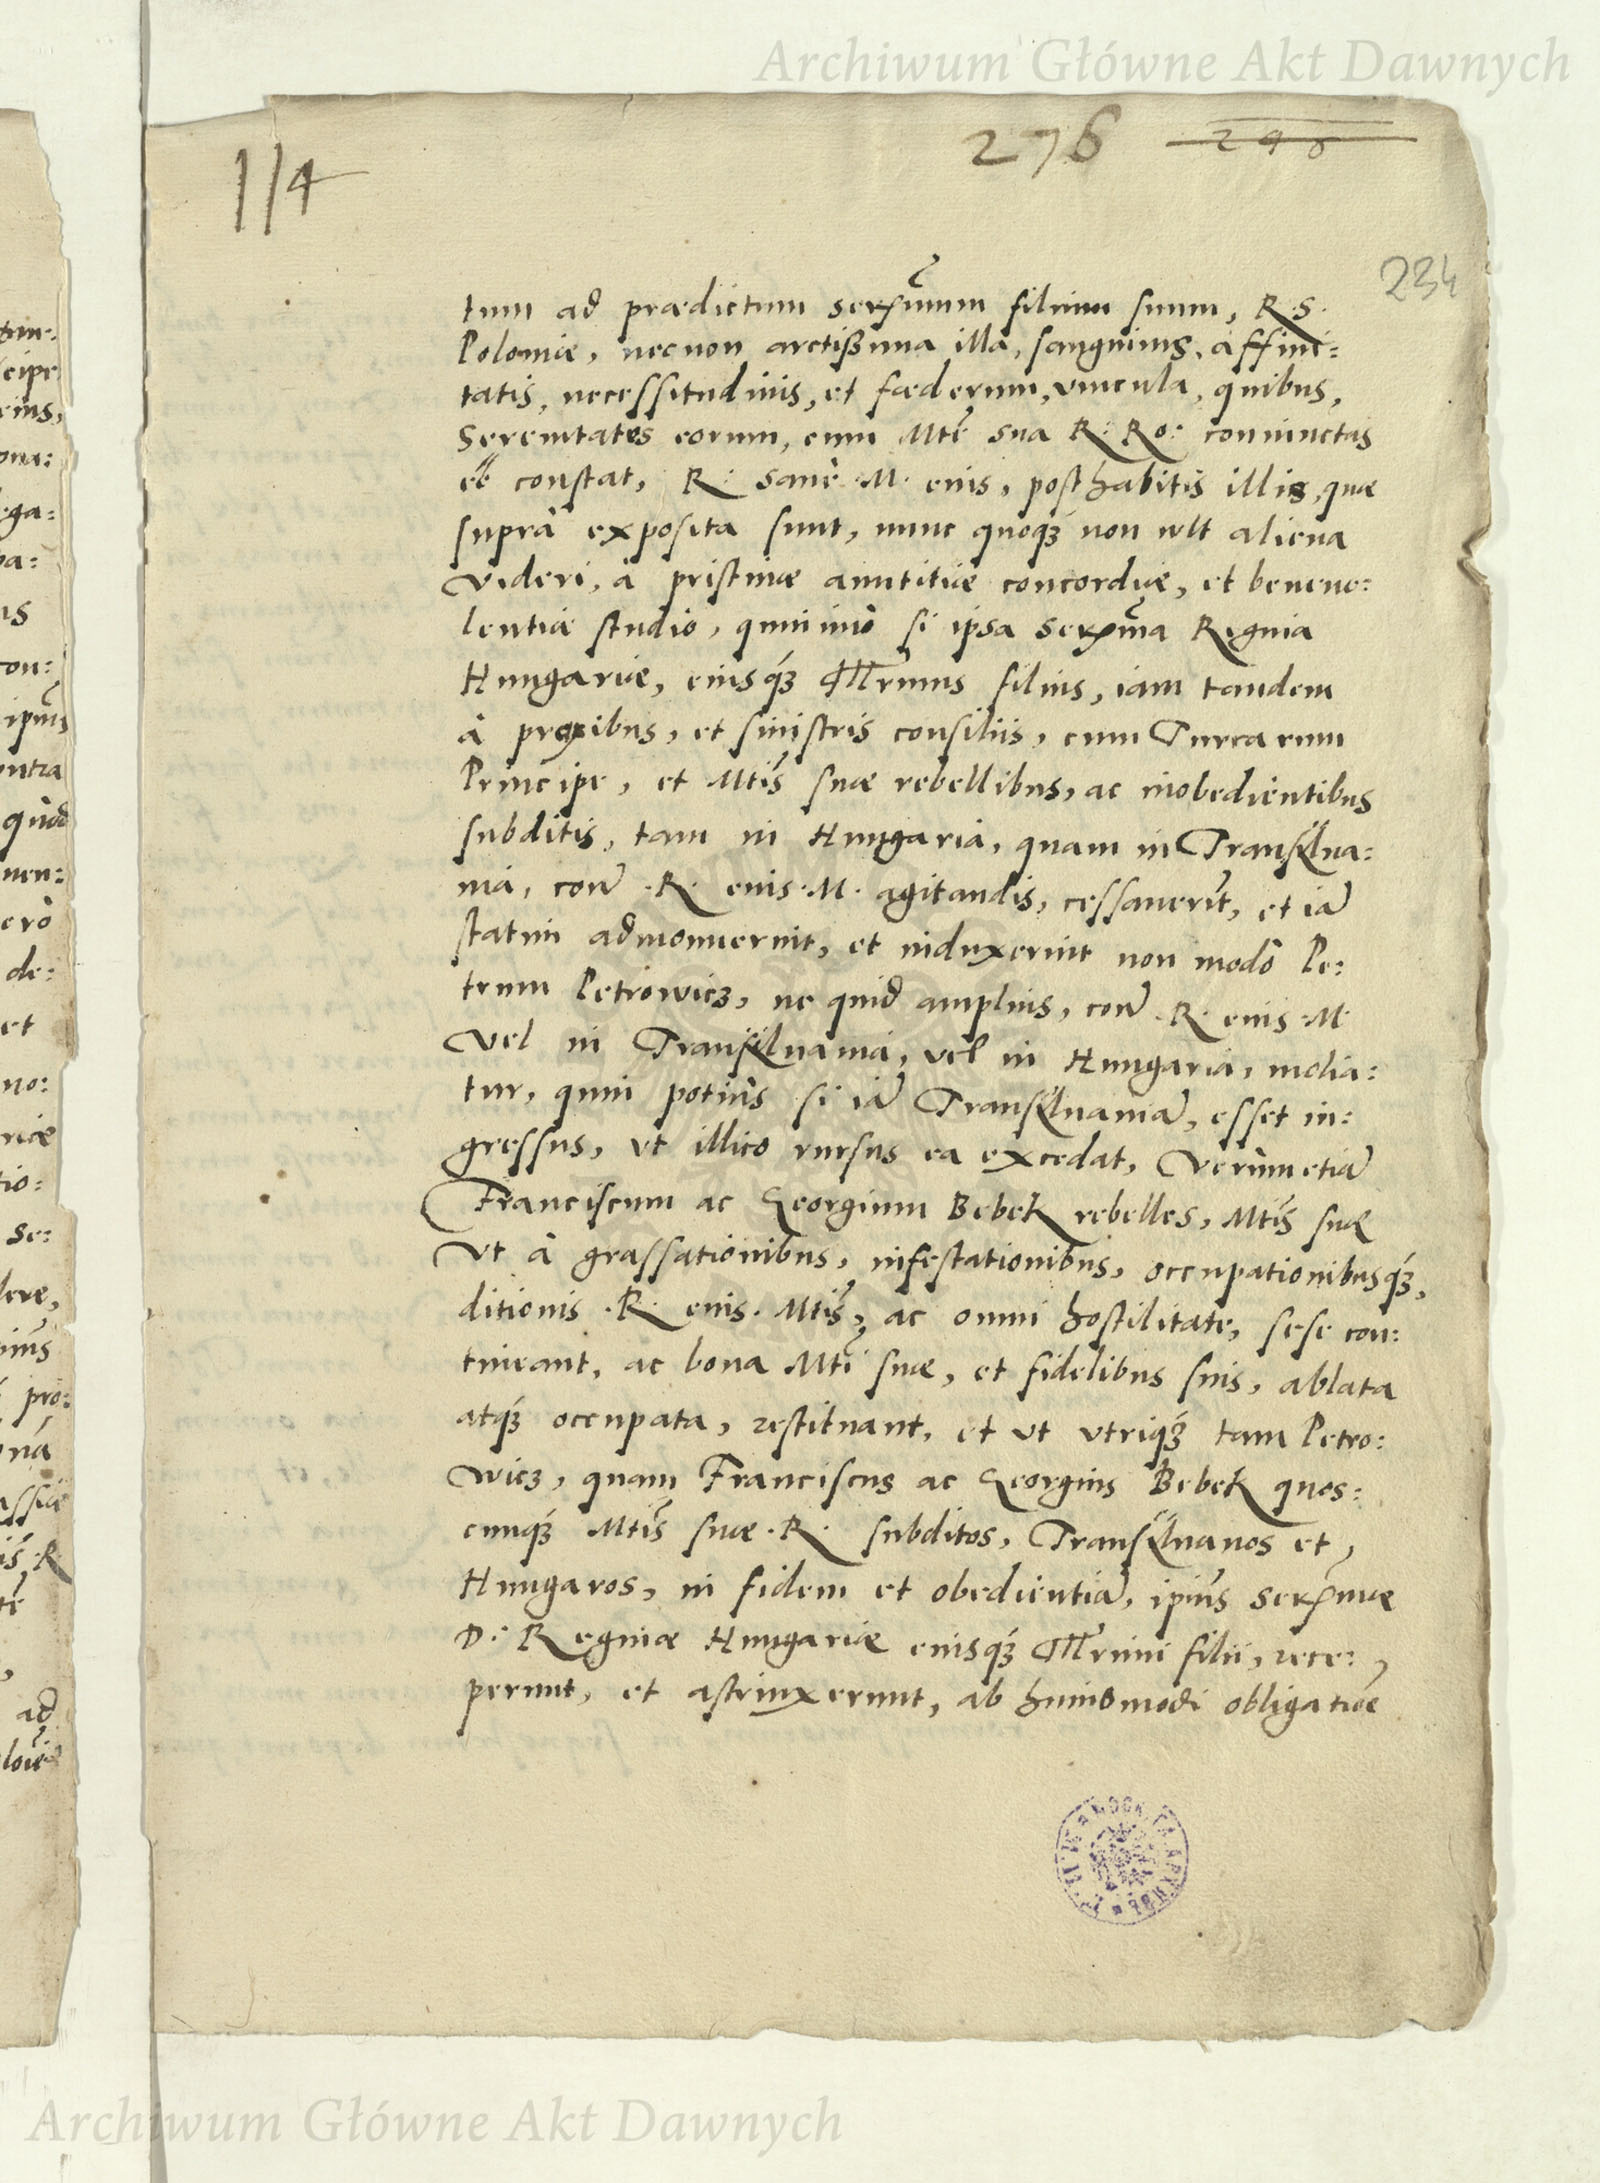 Archiwum Główne Akt Dawnych
276 296
114
234
tum ad prædictum serx̃mum filium suum, R. S.
Poloniæ, necnon arctißima illa, sanguinis, affini:
tatis, necessitudinis, et fœderum, vincula, quibus,
Serenitates eorum, cum Mtẽ sua R: Ro: coniunctas
eẽ constat, R. sanè M. eius, posthabitis illis, quæ
suprà exposita sunt, nunc quoqꝫ non vult aliena
videri, à pristinæ amicitiæ concordiæ, et beneuo:
lentiæ studio, quinimò si ipsa Serx̃ma Regina
Hungariæ, eiusqꝫ Illr̃mus filius, iam tandem
à praxibus, et sinistris consiliis, cum Turcarum
Principe, et Mtis̃ suæ rebellibus, ac inobedientibus
subditis, tam in Hungaria, quam in Transÿlua:
nia, con̈ .R. eius .M. agitandis, cessauerin̄t, et iā
statim admonuerint, et induxerint non modò Pe:
trum Petrowicz, ne quid amplius, con̈ .R. eius .M.
Vel in Transÿluania, vel in Hungaria, molia:
tur, quin potiùs si iā Transÿluaniā, esset in:
gressus, vt illico rursus ea excedat, verùm etiā
Franciscum ac Georgium Bebek rebelles, Mtis̃ suæ
Vt à grassationibus, infestationibus, occupationibusqꝫ,
ditionis .R. eius. Mtis̃, ac omni hostilitate, sese con:
tineant, ac bona Mti̇̃ suæ, et fidelibus suis, ablata
atqꝫ occupata, restituant, et vt vtriqꝫ tam Petro:
wicz, quam Franciscus ac Georgius Bebek quos:
cunqꝫ Mtis̃ suæ .R. subditos, Transÿluanos et,
Hungaros, in fidem et obedientiā, ipius̃ serx̃mæ
D: Reginæ Hungariæ eiusqꝫ Illr̃mi filii, rece:,
perunt, et astrinxerunt, ab huiusmodi obligatiōe
Archiwum Główne Akt Dawnych